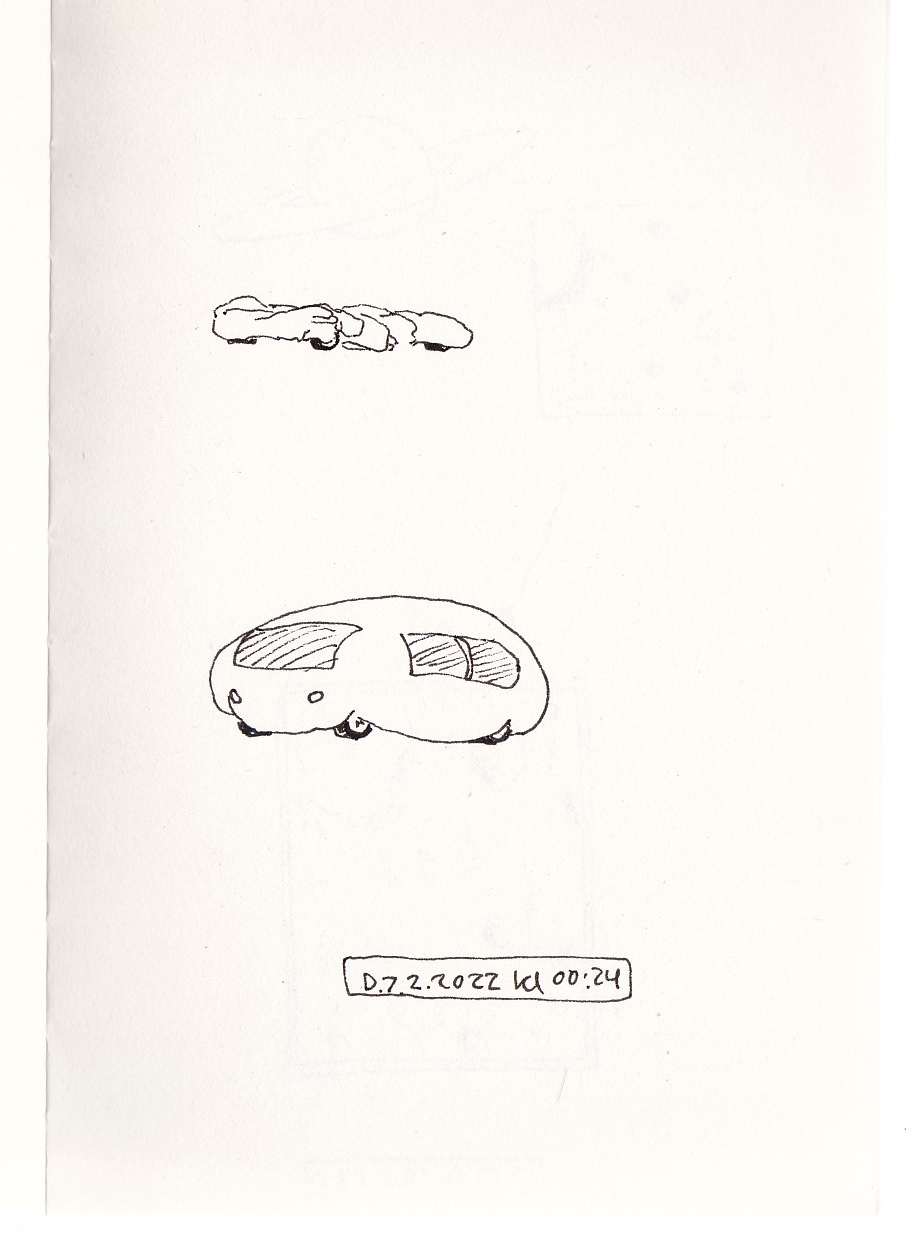 D.7.2.2022 kl 00:24